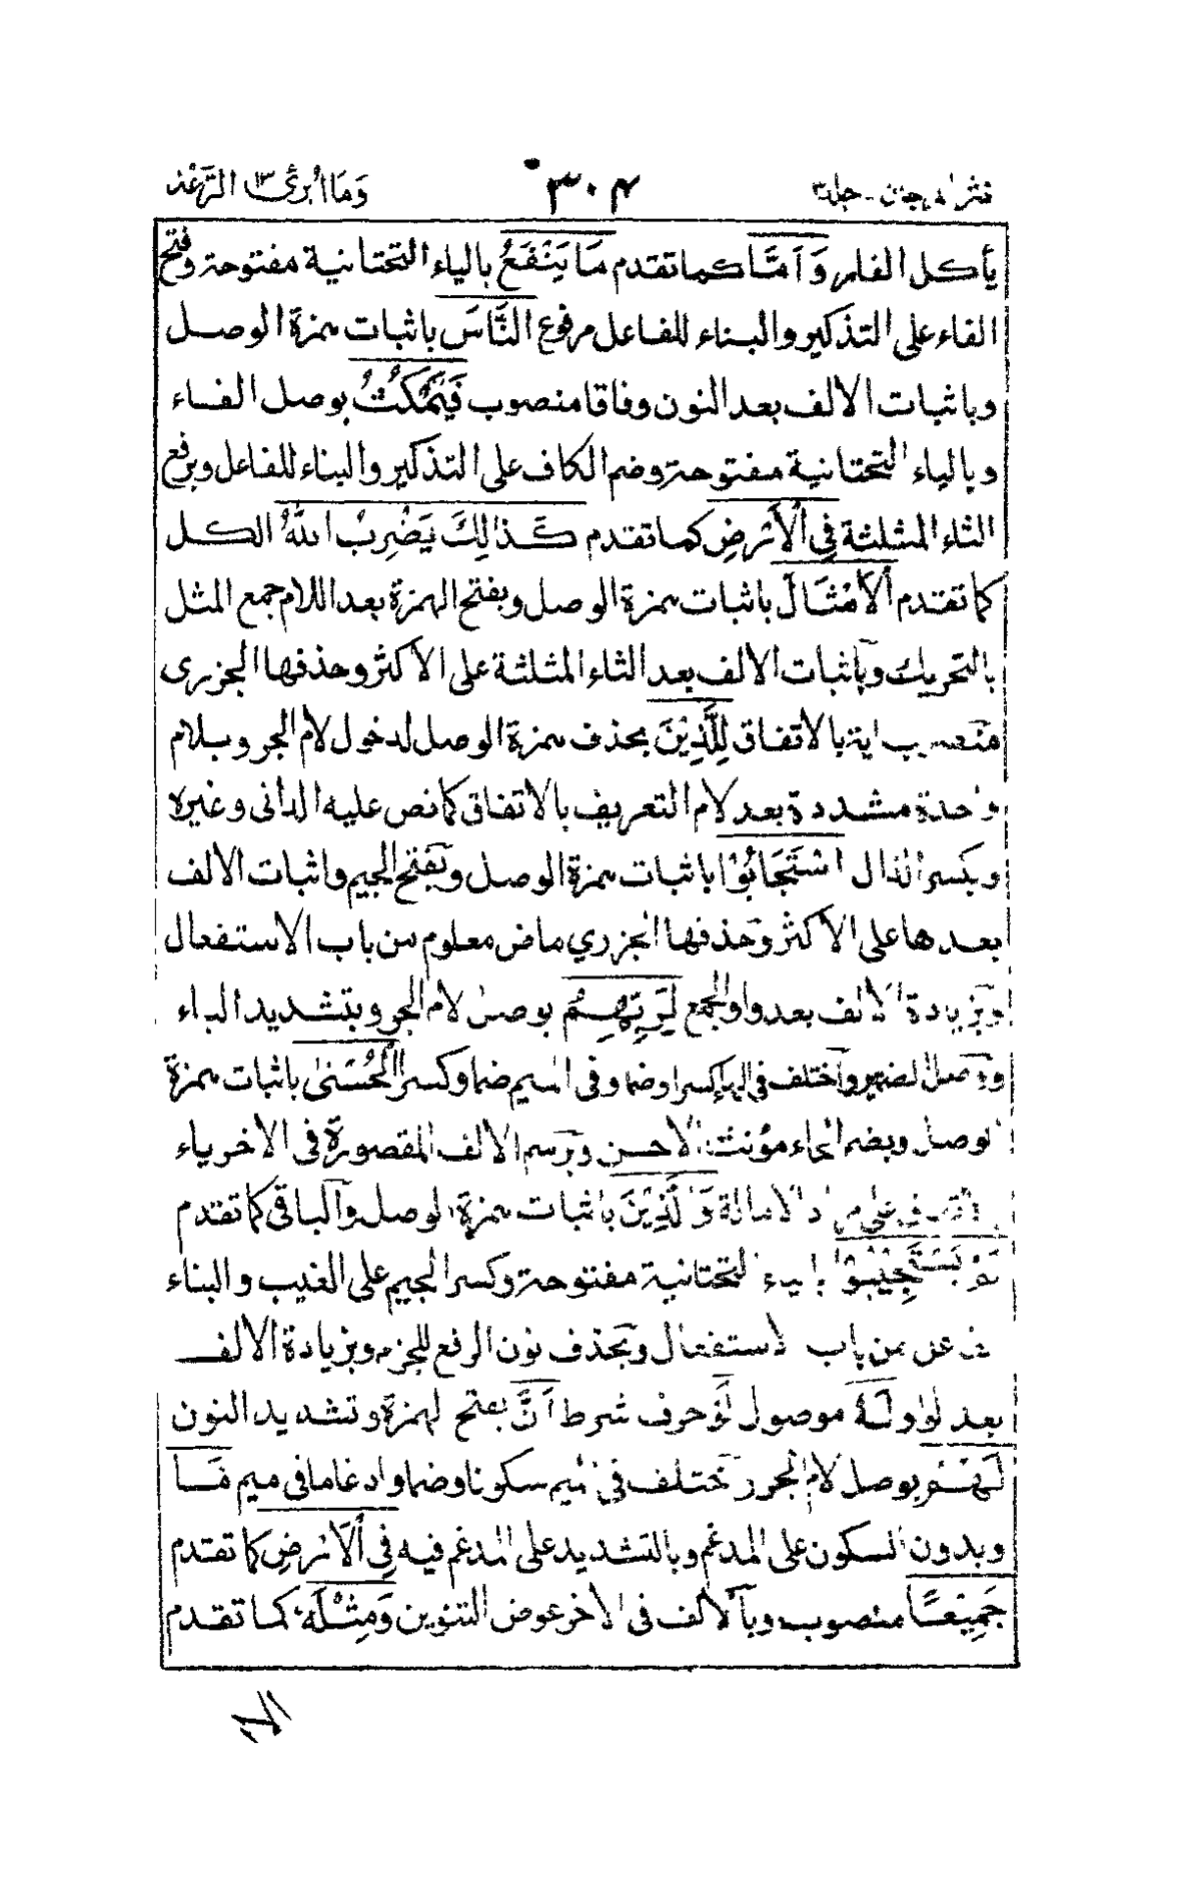 نثر المرجان - جلد ٣ ٣٠٤ وَمَا أُبَرِّئُ ١٣ الرَّعْد
يأكل الفار وَاَمَّا كما تقدم مَا يَنْفَعُ بالياء التحتانية مفتوحة وفتح
الفاء على التذكير والبناء للفاعل مرفوع النَّاسَ باثبات همزة الوصل
وباثبات الالف بعد النون وفاقا منصوب فَيَمْكُثُ بوصل الفاء
وبالياء التحتانية مفتوحة وضم الكاف على التذكير والبناء للفاعل وبرفع
الثاء المثلثة فِي الْاَرْضِ كما تقدم كَذٰلِكَ يَضْرِبُ اللهُ الكل
كما تقدم الْاَمْثَالَ باثبات همزة الوصل وبفتح الهمزة بعد اللام جمع المثل
بالتحريك وباثبات الالف بعد الثاء المثلثة على الاكثر وحذفها الجزرى
منصوب اية بالاتفاق لِلَّذِيْنَ بحذف همزة الوصل لدخول لام الجر وبلام
واحدة مشددة بعد لام التعريف بالاتفاق كما نص عليه الدانى وغيره
وبكسر الذال اسْتَجَابُوْا باثبات همزة الوصل وبفتح الجيم واثبات الالف
بعدها على الاكثر وحذفها الجزري ماض معلوم من باب الاستفعال
وبزيادة الالف بعد واو الجمع لِرَبِّهِمُ بوصل لام الجر وبتشديد الباء
ووصل الضمير واختلف في الهاء كسرا وضما وفى الميم ضما وكسرا الْحُسْنٰى باثبات همزة
الوصل وبضم الحاء مؤنث الاحسن وبرسم الالف المقصورة فى الاخر ياء
على مراد الامالة وَالَّذِيْنَ باثبات همزة الوصل والباقى كما تقدم
لَمْ يَسْتَجِيْبُوْا بالياء التحتانية مفتوحة وكسر الجيم على الغيب والبناء
للفاعل من باب الاستفعال وبحذف نون الرفع للجزم وبزيادة الالف
بعد الواو لَهٗ موصول لَوْ حرف شرط اَنَّ بفتح الهمزة وتشديد النون
لَهُمْ بوصل لام الجر واختلف فى الميم سكونا وضما وادغاما فى ميم مَا
وبدون السكون على المدغم وبالتشديد على المدغم فيه فِي الْاَرْضِ كما تقدم
جَمِيْعًا منصوب وبالالف فى الاخر عوض التنوين وَمِثْلَهٗ كما تقدم